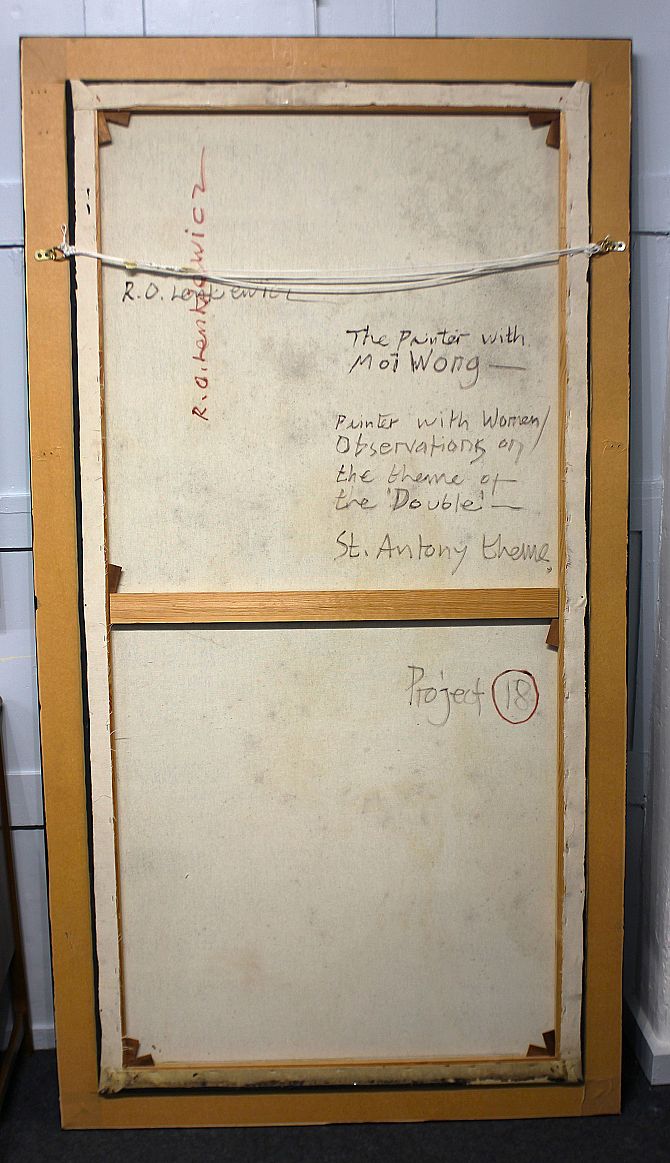 R.O.Lenkiewicz
R.O.Lenkiewicz
The Painter with
Moi Wong —
Painter with Women/
Observations on
the theme of
the 'Double' —
St. Antony theme.
Project 18